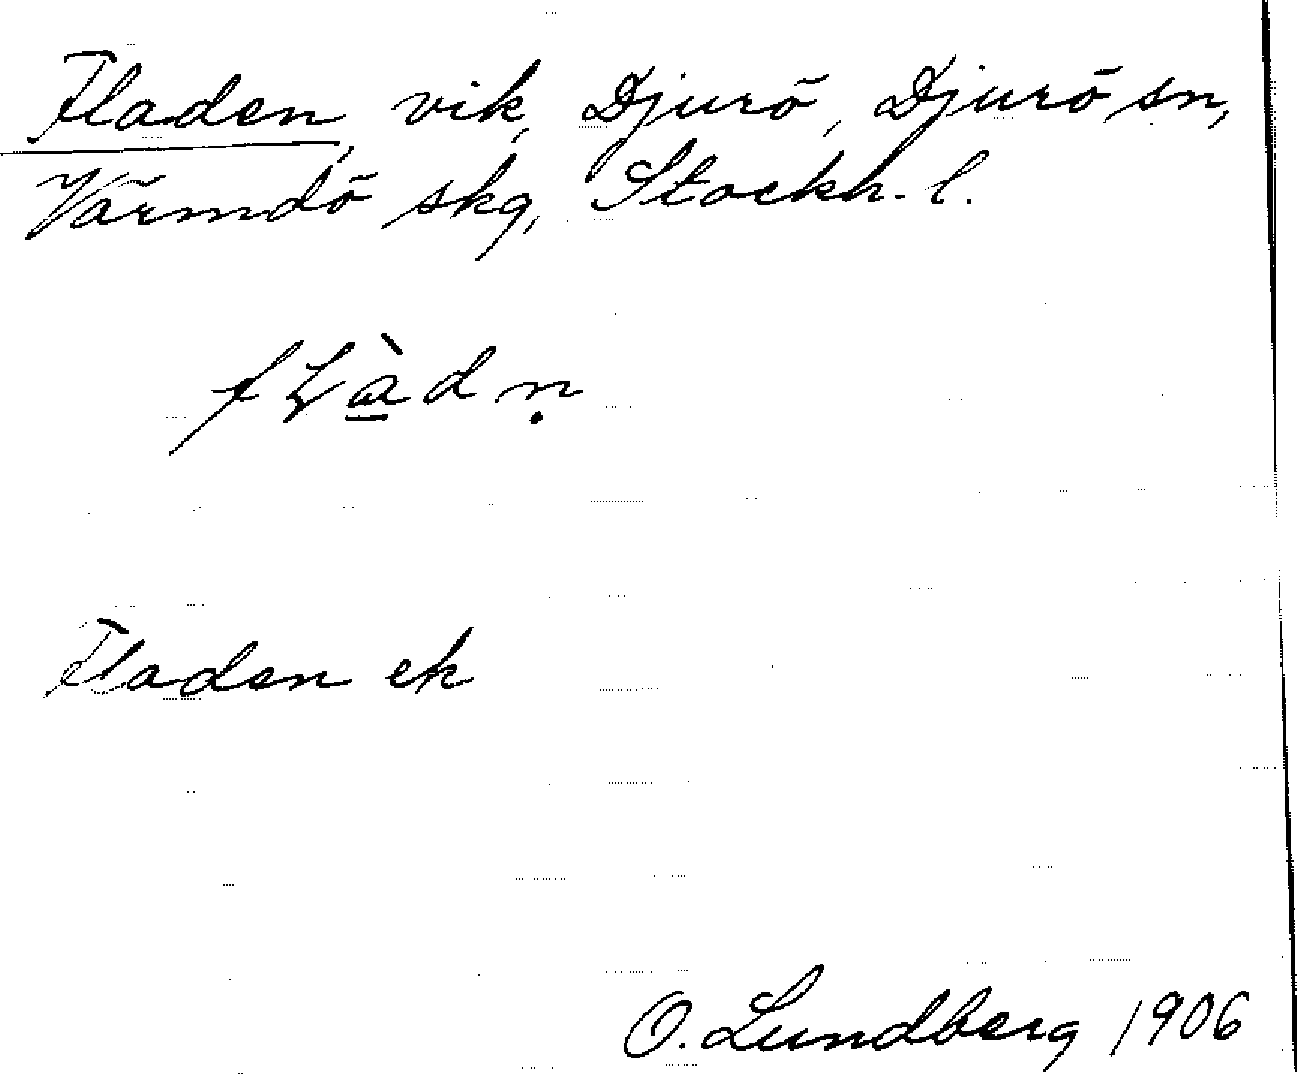 Fladen, vik, Djurö, Djurö sn,
Värmdö skg, Stockh. l.
fḷà̱dṇ
Fladen ek
O. Lundberg 1906